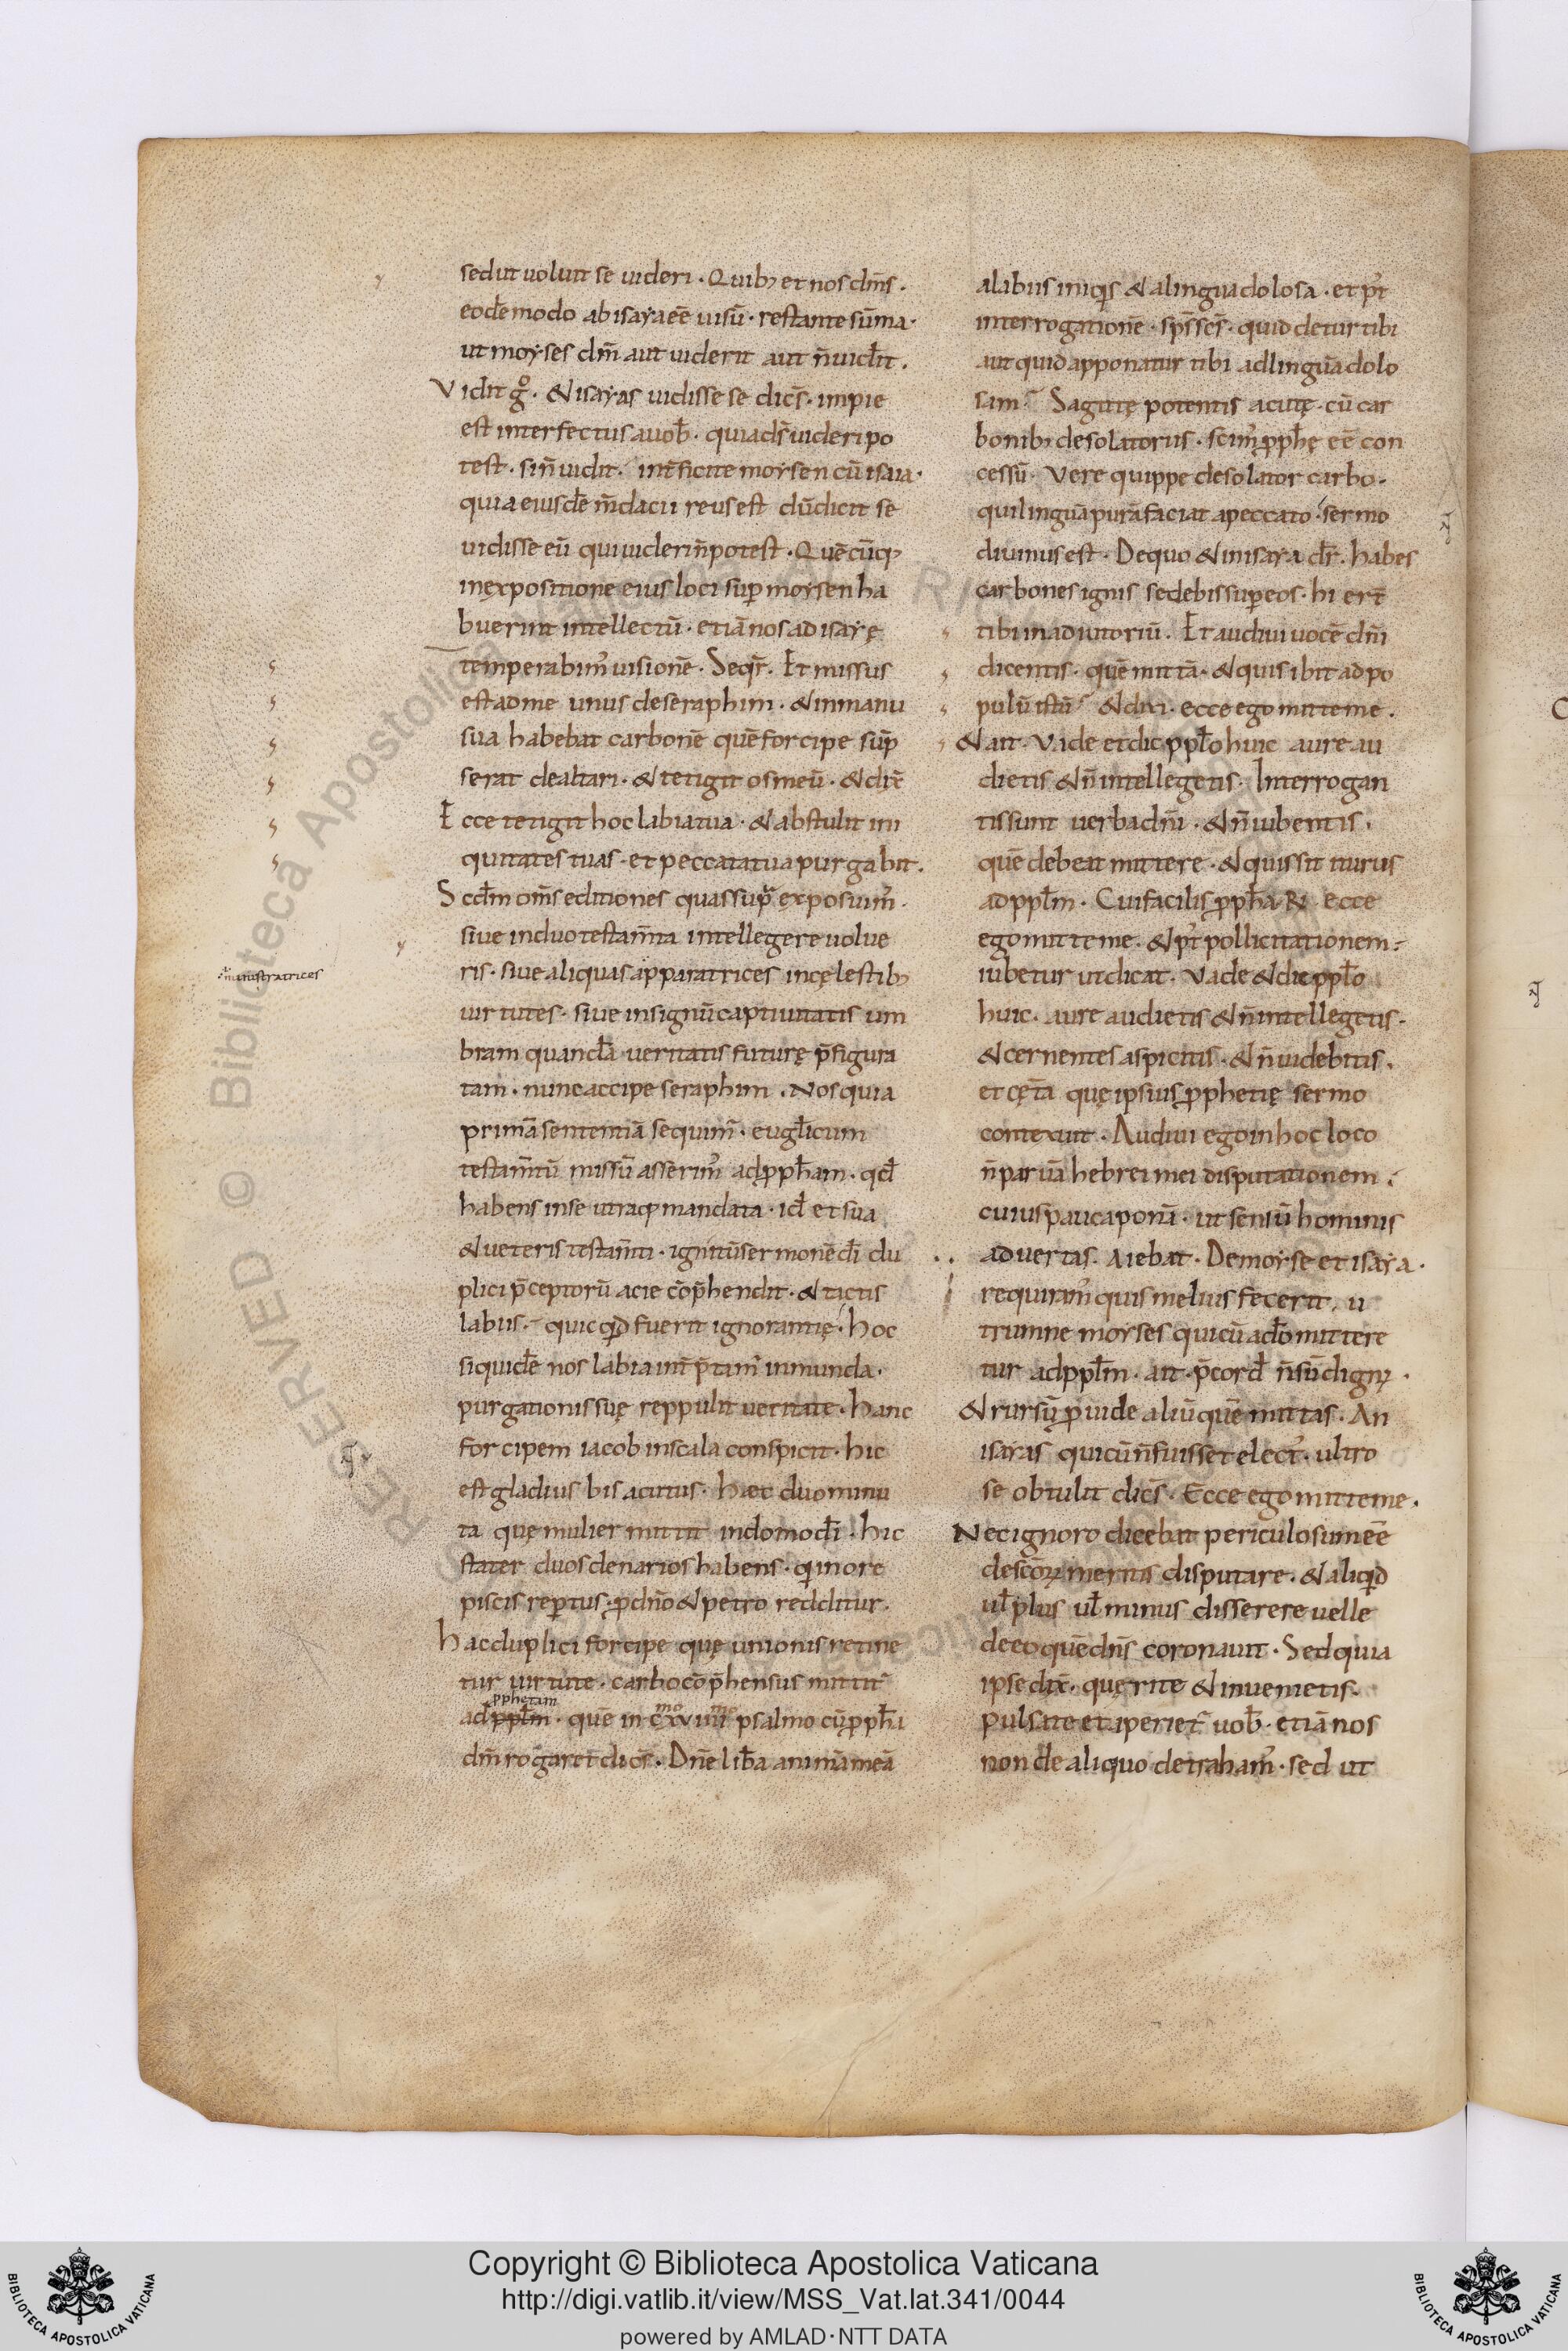 sedut uoluit se uideri · Quib; et nos dm̄s ·
eodē modo ab isaya eē uisū · restante sūma ·
ut moyses dm̄ aut uiderit aut n̄ uidẽt .
Vidit gͦ · & isayas uidisse se dics̄ · impie
est interfectus a uob̄ · quia ds̄ uideri po
test · si n̄ uidit · int̄ficite moysen cū isaia ·
quia eiusdē m̄dacii reus est dū dicit se
uidisse eū qui uideri n̄ potest · Quēcūq;
in expositione eius loci sup̄ moysen ha
buerint intellectū · etiā nos ad isayę
temperabim᾿ uisionē · Seqr̄ · Et missus
est ad me unus de seraphim · & in manu
sua habebat carbonē quē forcipe sup̄
serat de altari · & tetigit os meū · & dix̄
Ecce tetigit hoc labia tua · & abstulit ini
quitates tuas · et peccata tua purgabit .
Scdm̄ om̄s editiones quas supͣ exposuim᾿ ·
siue in duo testam̄ta intellegere uolue
ris · siue aliquas apparatrices in cęlestib;
ministratrices
uirtutes · siue in signū captiuitatis um
bram quandā ueritatis futurę p̄figura
tam · nunc accipe seraphim · Nos quia
primā sententiā sequim᾿ · eugl̄icum
testam̄tū missū asserim᾿ ad pp̄ham · qd̄
habens in se utraq; mandata · id ē et sua
& ueteris testam̄ti · ignitū sermonē dī du
plici p̄ceptorū acie cōp̄hendit · & tactis
labiis · quicqd fuerit ignorantię · hoc
siquidē nos labia int̄p̄tam᾿ inmunda ·
purgationis suę reppulit ueritate · hanc
forcipem iacob in scala conspicit · hic
est gladius bis acutus · hæc duo minu
ta quę mulier mittit in domo dī · hic
stater duos denarios habens · qi in ore
piscis rep̄tus · p dn̄o & petro redditur ·
hac duplici forcipe quę unionis retine
tur uirtute · carbo cōp̄hensus mittit᾿
pphetam
ad ppl̄m · quē in cxviiii mo psalmo cū pp̄ha
dm̄ rogaret dics̄ · Dn̄e lib̄a animā meā
a labiis iniqis & a lingua dolosa · et p᾿t
interrogationē · sps̄ scs̄ · quid detur tibi
aut quid apponatur tibi ad linguā dolo
sam · Sagittę potentis acutę · cū car
bonib; desolatoriis · scim᾿ pp̄hę eē con
cessū · Vere quippe desolator carbo ·
qui linguā purā faciat a peccato · sermo
diuinus est · De quo & in isaya dr̄ · habes
carbones ignis sedebis sup̄ eos · hi ert̄
tibi in adiutoriū · Et audiui uocē dm̄i
dicentis · quē mittā · & quis ibit ad po
pulū istū · & dixi · ecce ego mitte me .
& ait · Vade et dic ppl̄o huic aure au
dietis & n̄ intellegetis · Interrogan
tis sunt uerba dn̄i · & n̄ iubentis ·
quē debeat mittere · & quis sit iturus
ad ppl̄m · Cui facilis pp̄ha R̄ · ecce
ego mitte me · & p᾿t pollicitationem ·
iubetur ut dicat · Vade & dic ppl̄o
huic · aure audietis & n̄ intellegetis ·
& cernentes aspicitis · & n̄ uidebitis ·
et cęt̄a quę ipsius pphetię sermo
contexuit · Audiui ego in hoc loco
n̄ paruā hebrei mei disputationem ·
cuius pauca ponā · ut sensū hominis
aduertas · Aiebat · De moyse et isaya ·
requiram᾿ quis melius fecerit · u
trumne moyses qui cū a dō mittere
tur ad ppl̄m · ait · p̄cor d̄ n̄ sū dign; ·
& rursū puide aliū quē mittas · An
isayas qui cū n̄ fuisset elect᾿ · ultro
se obtulit dics̄ · Ecce ego mitte me .
Nec ignoro dicebat periculosum eē
de scōrȝ meritis disputare · & aliqd
ul̄ plus ul̄ minus disserere uelle
de eo quē dn̄s coronauit · Sed quia
ipse dix̄ · quęrite & inuenietis ·
pulsate et aperiet᾿ uob̄ · etiā nos
non de aliquo detraham᾿ · sed ut
Copyright © Biblioteca Apostolica Vaticana
http://digi.vatlib.it/view/MSS_Vat.lat.341/0044
powered by AMLAD·NTT DATA
BIBLIOTECA APOSTOLICA VATICANA
BIBLIOTECA APOSTOLICA VATICANA